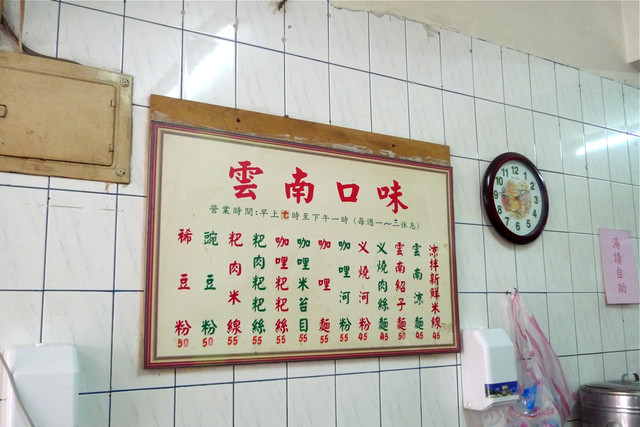 雲南口味
營業時間:早上七時至下午一時(每週一~三休息)
涼拌新鮮米線 45
雲南涼麵 45
雲南紹子麵 50
义燒肉絲麵 45
义燒河粉 45
咖哩河粉 55
咖哩麵 55
咖哩米苔目 55
咖哩粑粑絲 55
粑肉粑粑絲 55
粑肉米線 55
豌豆粉 50
稀豆粉 50
湯請自助